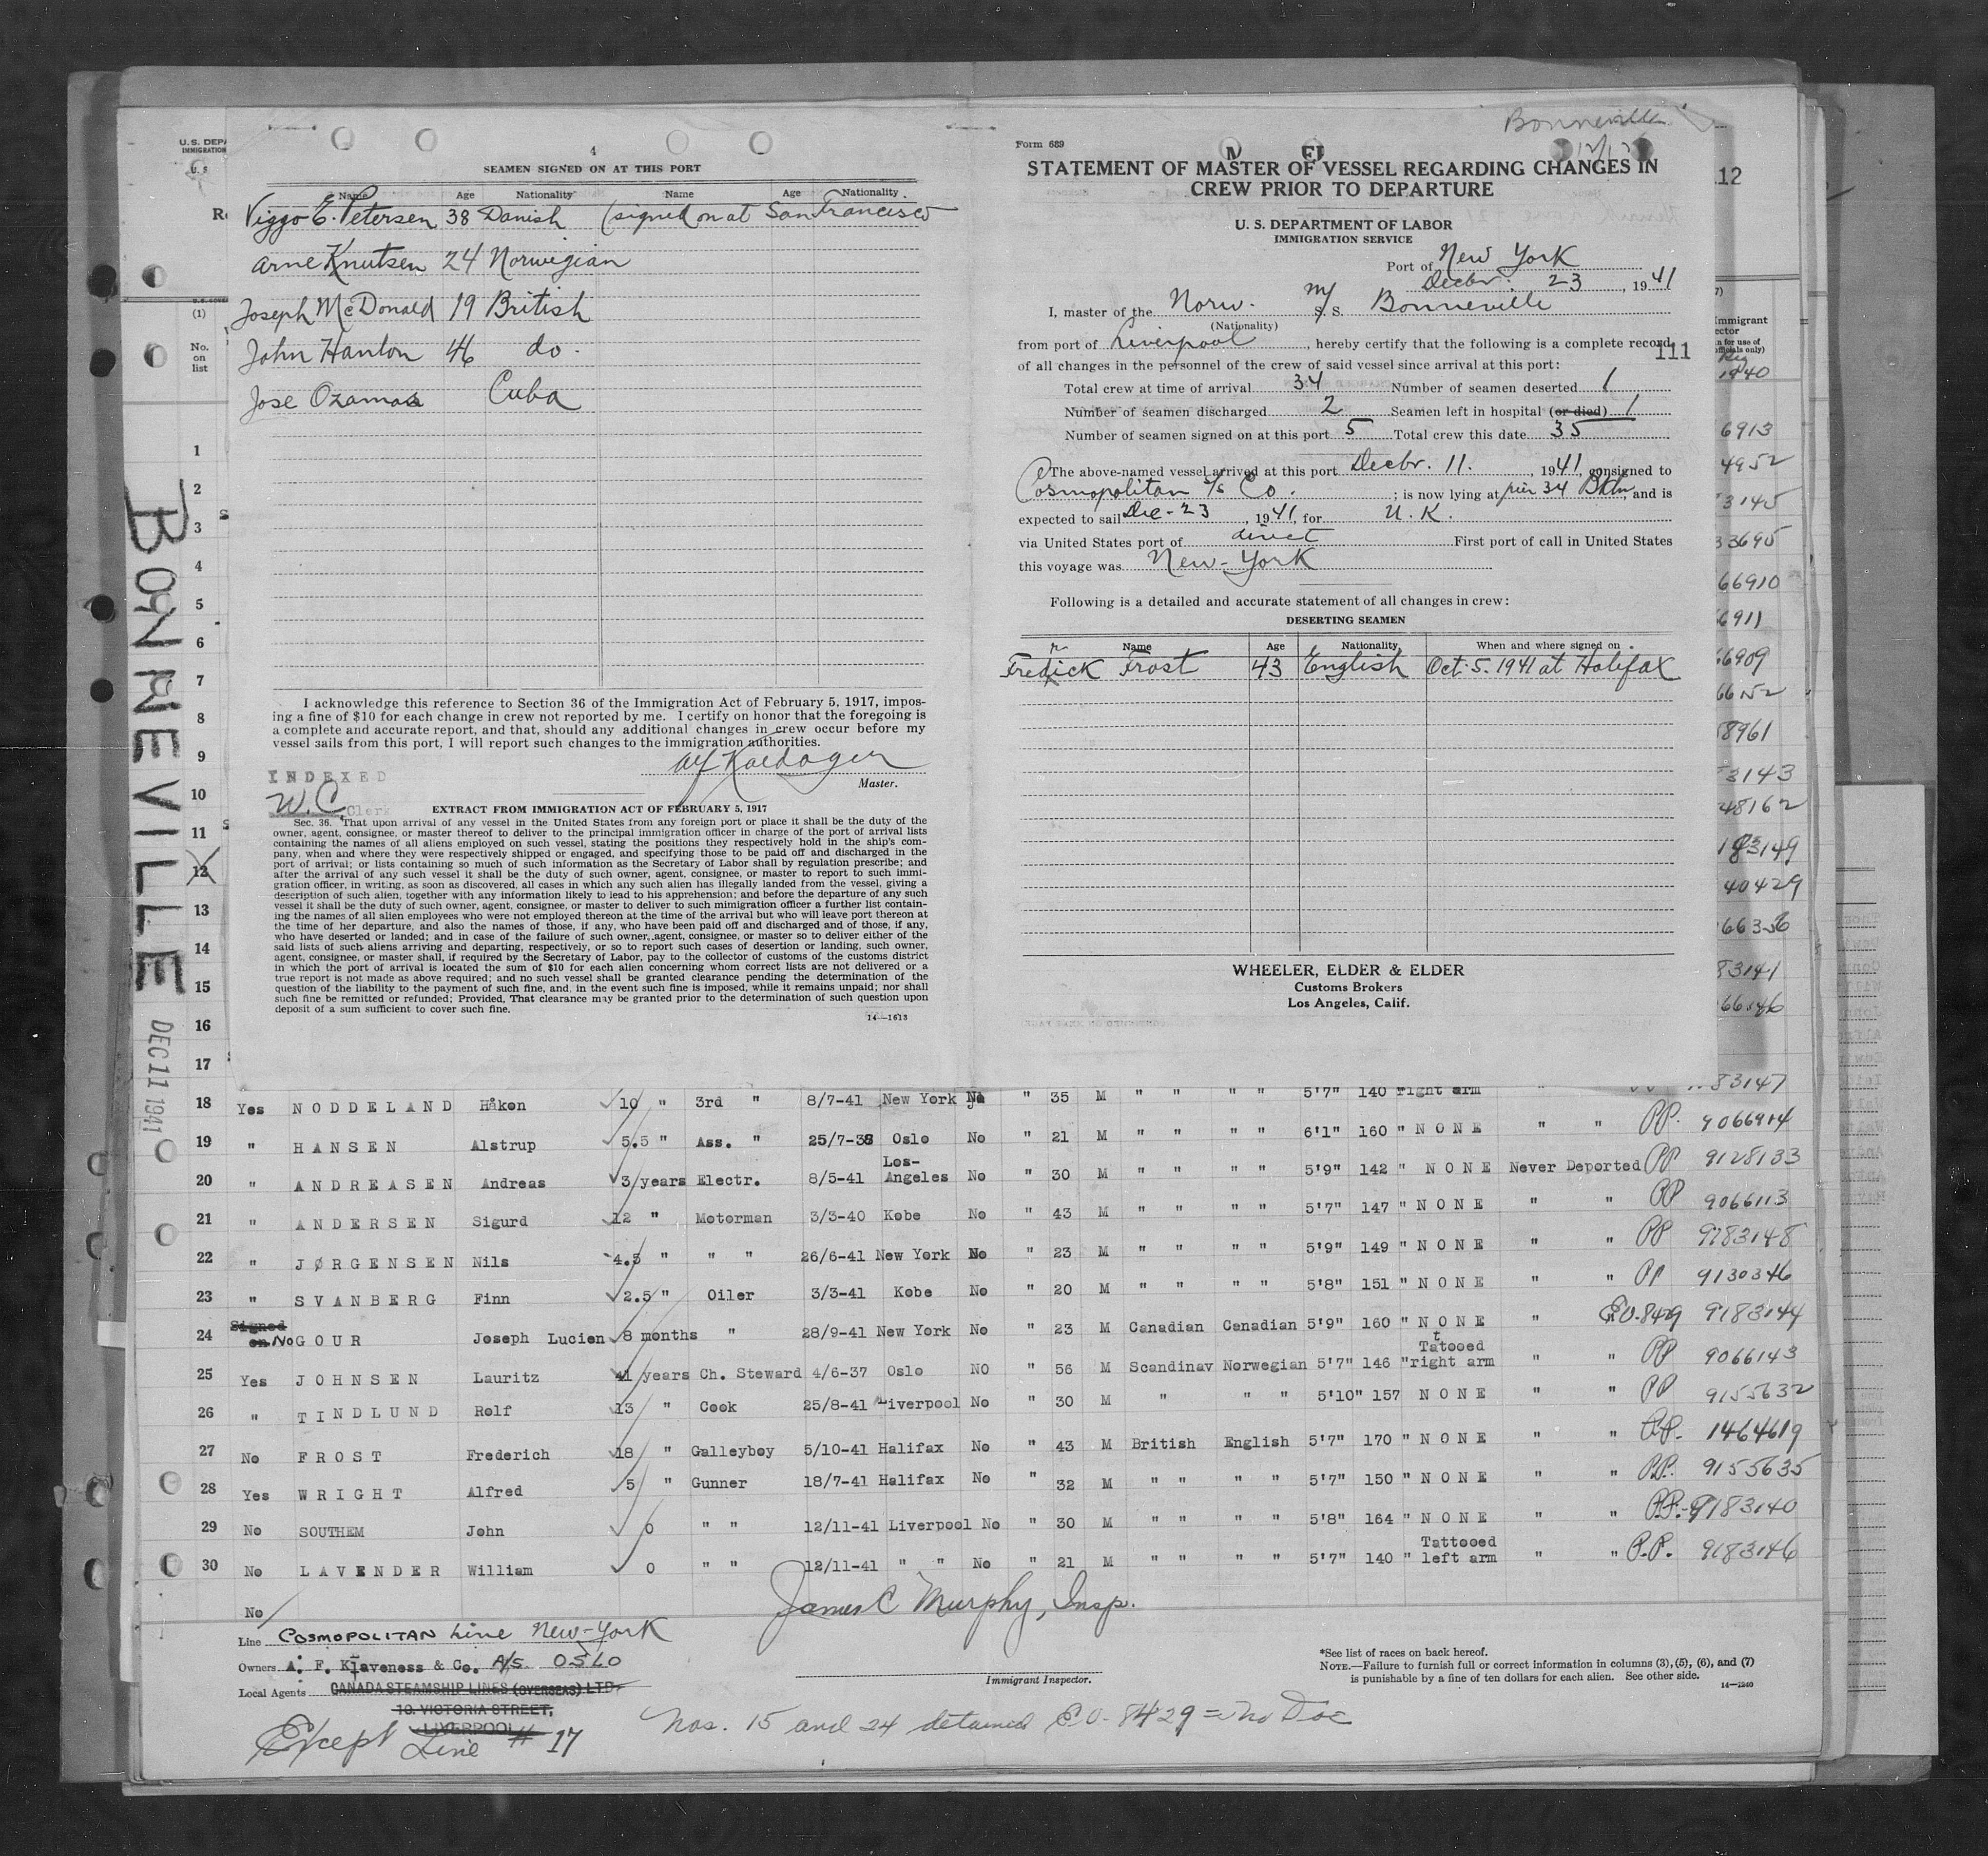 4
SEAMEN SIGNED ON AT THIS PORT
Name Age Nationality Name Age Nationality
Viggo E. Petersen 38 Danish (signed on at San Francisco
Arne Knutsen 24 Norwegian
Joseph McDonald 19 British
John Hanlon 46 do.
Jose Cuba
I acknowledge this reference to Section 36 of the Immigration Act of February 5, 1917, impos-
ing a fine of $10 for each change in crew not reported by me. I certify on honor that the foregoing is
a complete and accurate report, and that, should any additional changes in crew occur before my
vessel sails from this port, I will report such changes to the immigration authorities.
Master.
INDEXED
W.C. Clerk
EXTRACT FROM IMMIGRATION ACT OF FEBRUARY 5, 1917
Sec. 36. That upon arrival of any vessel in the United States from any foreign port or place it shall be the duty of the
owner, agent, consignee, or master thereof to deliver to the principal immigration officer in charge of the port of arrival lists
containing the names of all aliens employed on such vessel, stating the positions they respectively hold in the ship's com-
pany, when and where they were respectively shipped or engaged, and specifying those to be paid off and discharged in the
port of arrival; or lists containing so much of such information as the Secretary of Labor shall by regulation prescribe; and
after the arrival of any such vessel it shall be the duty of such owner, agent, consignee, or master to report to such immi-
gration officer, in writing, as soon as discovered, all cases in which any such alien has illegally landed from the vessel, giving a
description of such alien, together with any information likely to lead to his apprehension; and before the departure of any such
vessel it shall be the duty of such owner, agent, consignee, or master to deliver to such mimigration officer a further list contain-
ing the names of all alien employees who were not employed thereon at the time of the arrival but who will leave port thereon at
the time of her departure, and also the names of those, if any, who have been paid off and discharged and of those, if any,
who have deserted or landed; and in case of the failure of such owner, agent, consignee, or master so to deliver either of the
said lists of such aliens arriving and departing, respectively, or so to report such cases of desertion or landing, such owner,
agent, consignee, or master shall, if required by the Secretary of Labor, pay to the collector of customs of the customs district
in which the port of arrival is located the sum of $10 for each alien concerning whom correct lists are not delivered or a
true report is not made as above required; and no such vessel shall be granted clearance pending the determination of the
question of the liability to the payment of such fine, and, in the event such fine is imposed, while it remains unpaid; nor shall
such fine be remitted or refunded; Provided, That clearance may be granted prior to the determination of such question upon
deposit of a sum sufficient to cover such fine.
14—1613
Bonneville
Form 689
STATEMENT OF MASTER OF VESSEL REGARDING CHANGES IN
CREW PRIOR TO DEPARTURE
U. S. DEPARTMENT OF LABOR
IMMIGRATION SERVICE
Port of New York
Decbr. 23, 1941
I, master of the Norw. m/ S. S. Bonneville
(Nationality)
from port of Liverpool, hereby certify that the following is a complete record
111
of all changes in the personnel of the crew of said vessel since arrival at this port:
Total crew at time of arrival 34 Number of seamen deserted 1
Number of seamen discharged 2 Seamen left in hospital (or died) 1
Number of seamen signed on at this port 5 Total crew this date 35
The above-named vessel arrived at this port Decbr. 11., 1941, consigned to
Cosmopolitan S/S Co.; is now lying at pier 34 Bkln, and is
expected to sail Dec-23, 1941, for U.K.
via United States port of direct First port of call in United States
this voyage was New-York
Following is a detailed and accurate statement of all changes in crew:
DESERTING SEAMEN
Name Age Nationality When and where signed on
Fredrick Frost 43 English Oct. 5. 1941 at Halifax
WHEELER, ELDER & ELDER
Customs Brokers
Los Angeles, Calif.
U. S. DEPA
IMMIGRATION
U. S
(1)
No.
on
list
1
2
3
4
5
6
7
8
9
10
11
12
13
14
15
16
17
BONNEVILLE
DEC 11 1941
12
6913
4952
3145
3695
66910
6911
6909
66152
8961
3143
48162
83149
40429
3141
83147
18 Yes NODDELAND Håkon 10 " 3rd " 8/7-41 New York No " 35 M " " " " 5'7" 140 right arm "
19 " HANSEN Alstrup 5.5 " Ass. " 25/7-38 Oslo No " 21 M " " " " 6'1" 160 " NONE " " PP. 9066914
20 " ANDREASEN Andreas 3 years Electr. 8/5-41 Los-Angeles No " 30 M " " " " 5'9" 142 " NONE Never Deported PP 9128133
21 " ANDERSEN Sigurd 12 " Motorman 3/3-40 Kobe No " 43 M " " " " 5'7" 147 " NONE " " PP 9066113
22 " JØRGENSEN Nils 4.5 " " " 26/6-41 New York No " 23 M " " " " 5'9" 149 " NONE " " PP 9183148
23 " SVANBERG Finn 2.5 " Oiler 3/3-41 Kobe No " 20 M " " " " 5'8" 151 " NONE " " PP 9130346
24 Signed on No GOUR Joseph Lucien 8 months " 28/9-41 New York No " 23 M Canadian Canadian 5'9" 160 " NONE " E.O.8429 9183144
25 Yes JOHNSEN Lauritz 41 years Ch. Steward 4/6-37 Oslo NO " 56 M Scandinav Norwegian 5'7" 146 " Tatooed right arm " " PP 9066143
26 " TINDLUND Rolf 13 " Cook 25/8-41 Liverpool No " 30 M " " " 5'10" 157 NONE " " PP 9155632
27 No FROST Frederich 18 " Galleyboy 5/10-41 Halifax No " 43 M British English 5'7" 170 " NONE " " PP. 1464619
28 Yes WRIGHT Alfred 5 " Gunner 18/7-41 Halifax No " 32 M " " " " 5'7" 150 " NONE " " P.P. 9155635
29 No SOUTHEM John 0 " " 12/11-41 Liverpool No " 30 M " " " " 5'8" 164 " NONE " " P.P. 9183140
30 No LAVENDER William 0 " " 12/11-41 " " No " 21 M " " " " 5'7" 140 " Tattooed left arm " " P.P. 9183146
No
James C Murphy, Insp.
Line COSMOPOLITAN Line New-York
Owners A. F. Klaveness & Co. A/S. OSLO
Local Agents CANADA STEAMSHIP LINES (OVERSEAS) LTD.
10. VICTORIA STREET,
LIVERPOOL
Except Line # 17
Immigrant Inspector.
*See list of races on back hereof.
NOTE.—Failure to furnish full or correct information in columns (3), (5), (6), and (7)
is punishable by a fine of ten dollars for each alien. See other side.
14—1240
Nos. 15 and 24 detained E.O. 8429 = No Doc